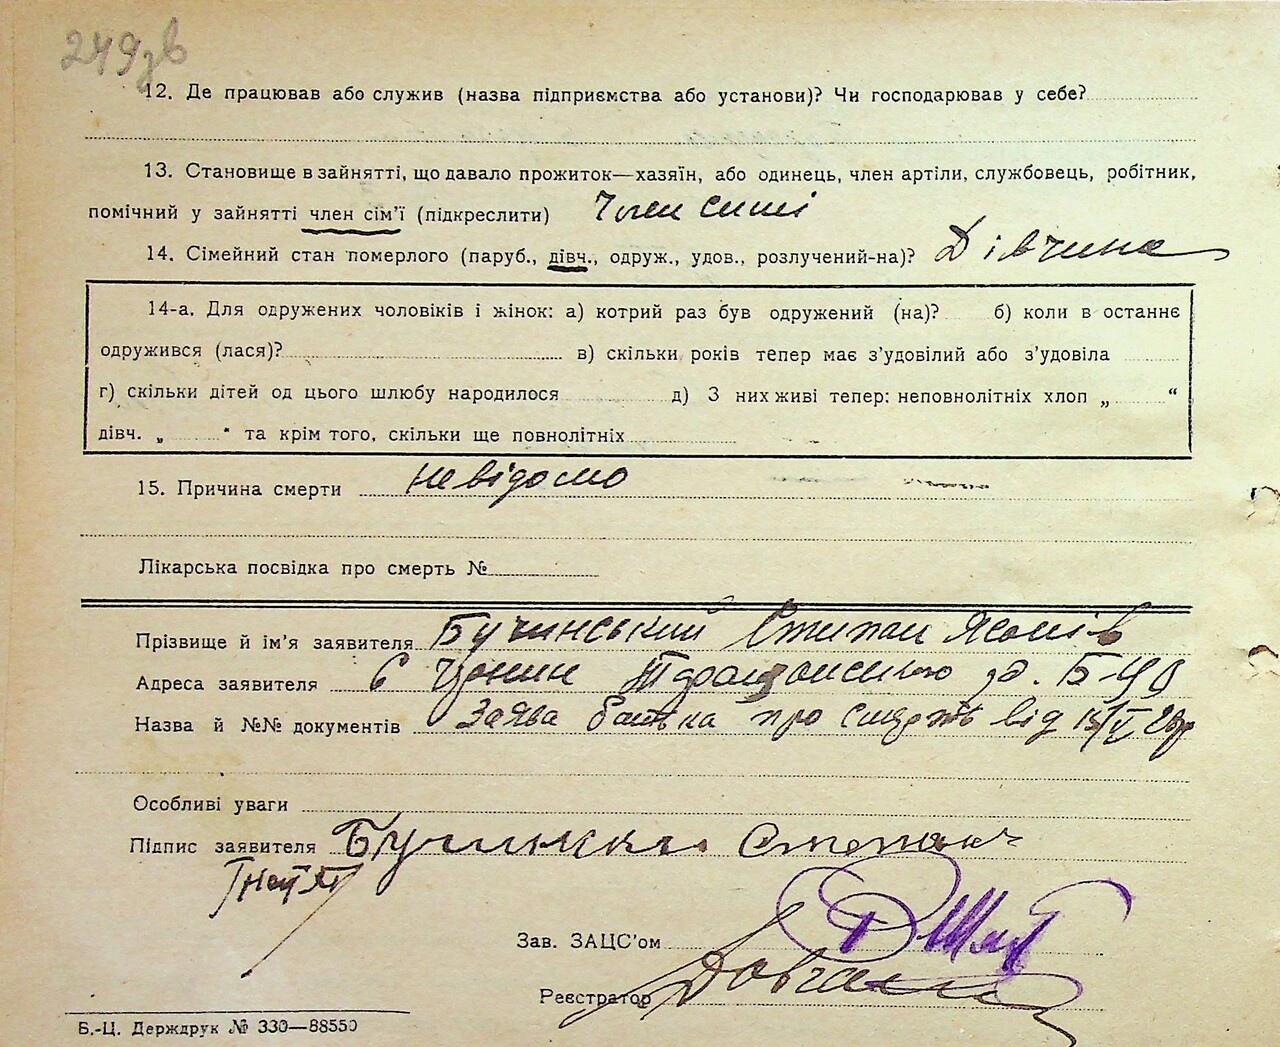 249зв
12. Де працював або служив (назва підприємства або установи)? Чи господарював у себе?
13. Становище в зайнятті, що давало прожиток—хазяїн, або одинець, член артіли, службовець, робітник,
помічний у зайнятті член сім'ї (підкреслити) Член симі
14. Сімейний стан померлого (паруб., дівч., одруж., удов., розлучений-на)? Дівчина
14-а. Для одружених чоловіків і жінок: а) котрий раз був одружений (на)? б) коли в останнє
одружився (лася)? в) скільки років тепер має з'удовілий або з'удовіла
г) скільки дітей од цього шлюбу народилося д) З них живі тепер: неповнолітніх хлоп „ “
дівч. „ “ та крім того, скільки ще повнолітніх
15. Причина смерти невідомо
Лікарська посвідка про смерть №
Прізвище й ім'я заявителя Бучинський Степан
Адреса заявителя С
Назва й №№ документів Заява батька про смерть від
Особливі уваги
Підпис заявителя
Зав. ЗАЦС'ом
Реєстратор
Б.-Ц. Держдрук № 330—88550